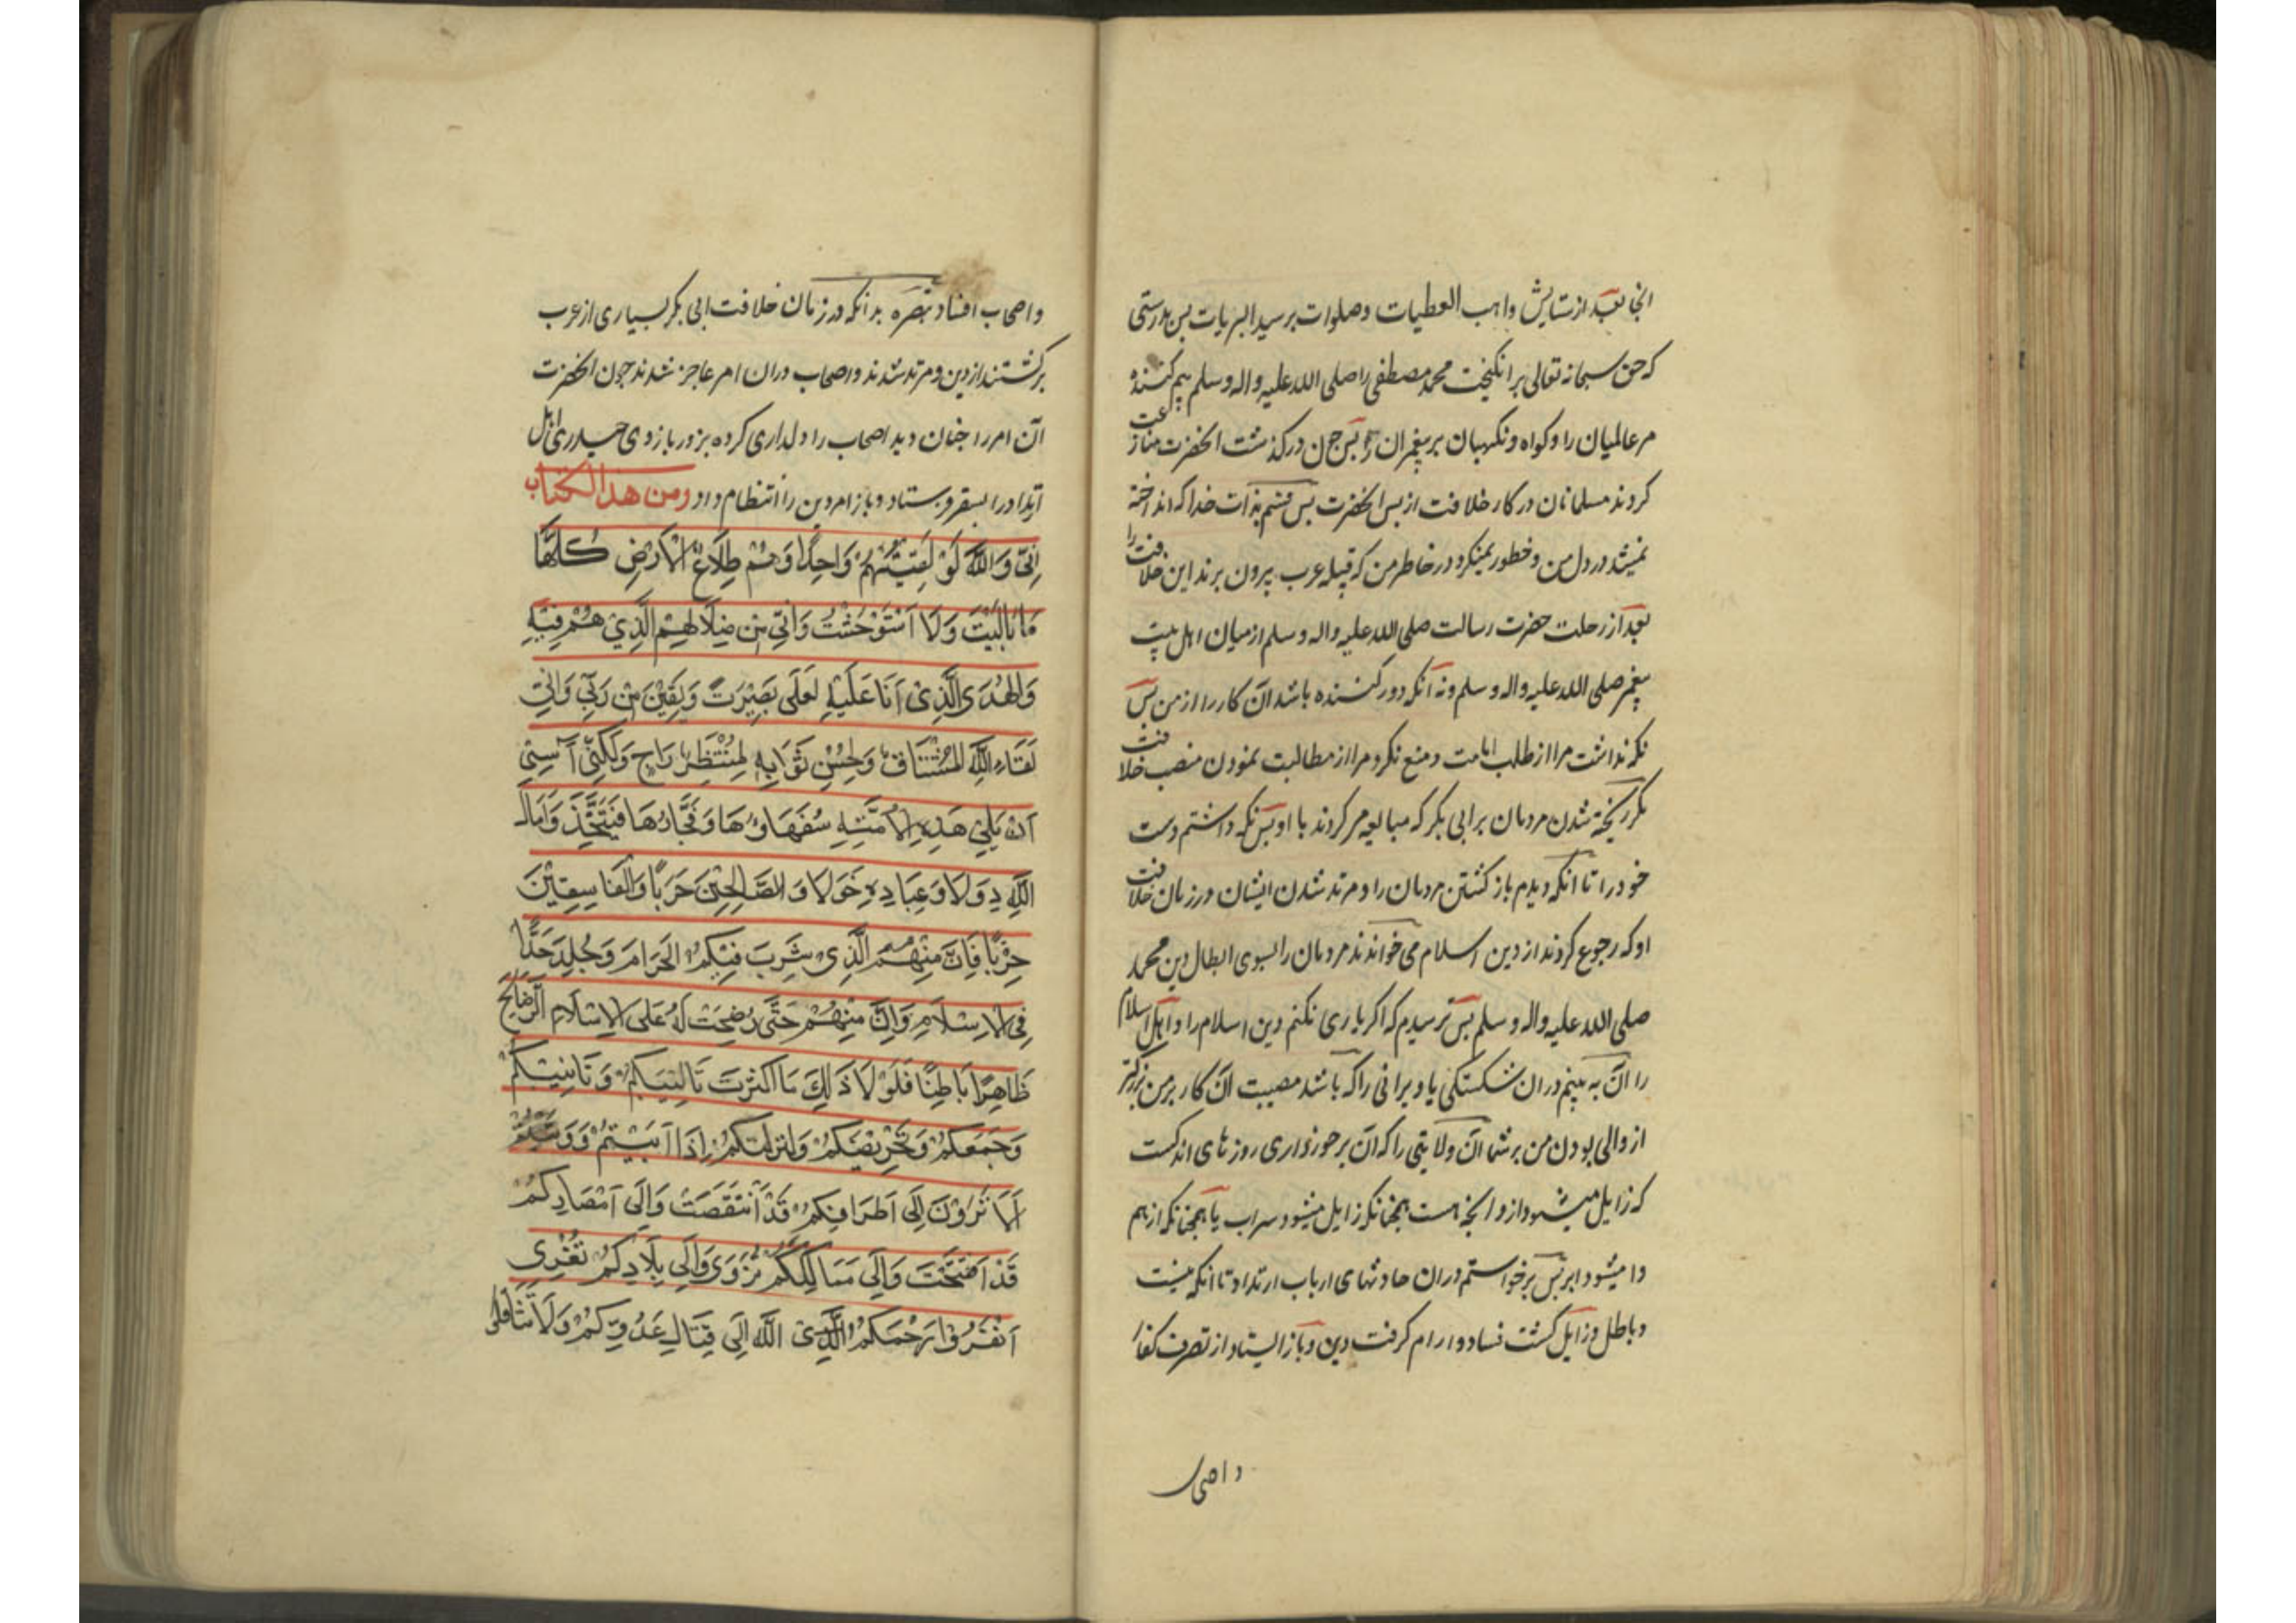 اما بعد از ستایش واهب العطیات وصلوات بر سید البریات پس بدرستی
که حق سبحانه تعالی بر انکیخت محمد مصطفی را صلی الله علیه واله وسلم بیم کننده
مر عالمیان را وکواه ونکهبان بر پیغمبران پس جون در کذشت انحضرت منازعت
کردند مسلمانان در کار خلافت از پس انحضرت پس قسم بذات خدا که انداخته
نمیشد در دل من وخطور نمیکرد در خاطر من که قبیله عرب بیرون برند این خلافت را
بعد از رحلت حضرت رسالت صلی الله علیه واله وسلم از میان اهل بیت
پیغمبر صلی الله علیه واله وسلم ونه آنکه دور کننده باشد ان کار را از من پس
نکه نداشت مرا از طلب امامت ومنع نکرد مرا از مطالبت نمودن منصب خلافت
مکر ریخته شدن مردمان بر ابی بکر که مبایعه مر کردند با او پس نکه داشتم دست
خود را تا انکه دیدم باز کشتن مردمان را ومرتد شدن ایشان در زمان خلافت
او که رجوع کردند از دین اسلام می خواندند مردمان را بسوی ابطال دین محمد
صلی الله علیه واله وسلم پس ترسیدم که اکر یاری نکنم دین اسلام را واهل اسلام
را آن به بینم در ان شکستکی یا ویرانی را که باشد مصیبت ان کار بر من بزرکتر
از والی بودن من بر شما آن ولایتی را که آن برخورداری روزهای اندکست
که زایل میشود از و انجه هست همجنانکه زایل میشود سراب یا همجنانکه از هم
وا میشود ابر پس برخواستم در ان حادثهای ارباب ارتداد تا انکه نیست
وباطل وزایل کشت فساد وارام کرفت دین وباز ایستاد از تصرف کفار
واصحاب
واصحاب افساد تبصره بدانکه در زمان خلافت ابی بکر بسیاری از عرب
برکشتند از دین ومرتد شدند واصحاب در ان امر عاجز شدند جون انحضرت
آن امر را جنان دید اصحاب را دلداری کرده بزور بازوی حیدری اهل
ارتداد را بسقر فرستاد وباز امر دین را انتظام داد ومن هذا الکتاب
اِنّی وَاللّهِ لَوْ لَقِیتُهُمْ وَاحِدًا وَهُمْ طِلَاعُ الْاَرْضِ کُلِّهَا
مَا بَالَیْتُ وَلَا اسْتَوْحَشْتُ وَاِنّی مِنْ ضَلَالِهِمُ الَّذِی هُمْ فِیْهِ
وَالْهُدَی الَّذِی اَنَا عَلَیْهِ لَعَلَی بَصِیْرَتٍ وَیَقِیْنٍ مِنْ رَبّی وَاِنّی
لِقَاءِ اللّهِ لَمُشْتَاقٌ وَلِحُسْنِ ثَوَابِهِ لَمُنْتَظِرٌ رَاجٍ وَلکِنّی آسی
اَنْ یَلِیَ هَذِهِ الْاُمَّتِهِ سُفَهَاؤُهَا وَفُجَّارُهَا فَیَتَّخِذُوا مَالَ
اللّهِ دِوَلًا وَعِبَادِهِ خَوَلًا وَالصَّالِحِیْنَ حَرَبًا وَالْفَاسِقِیْنَ
حِزْبًا فَاِنَّ مِنْهُمُ الَّذِی شَرِبَ فِیْکُمُ الْحَرَامَ وَجُلِدَ حَدًّا
فِی الْاِسْلَامِ وَاِنَّ مِنْهُمْ حَتّی رُضِخَتْ لَهُ عَلَی الْاِسْلَامِ الرَّضَایِخُ
ظَاهِرًا بَاطِنًا فَلَوْ لَا ذَلِکَ مَا اَکْثَرْتُ تَاْلِیْبَکُمْ وَتَاْنِیْبَکُمْ
وَجَمْعَکُمْ وَتَحْرِیْضَکُمْ وَلَتَرَکْتُکُمْ اِذَا اَبَیْتُمْ وَوَنَیْتُمْ
اَلَا تَرَوْنَ اِلَی اَطْرَافِکُمْ قَدِ انْتَقَصَتْ وَاِلَی اَمْصَارِکُمْ
قَدِ افْتُتِحَتْ وَاِلَی مَمَالِکِکُمْ تُزْوَی وَاِلَی بِلَادِکُمْ تُغْزَی
اَنْفِرُوا رَحِمَکُمُ اللّهُ اِلَی قِتَالِ عَدُوِّکُمْ وَلَا تَثَّاقَلُوا